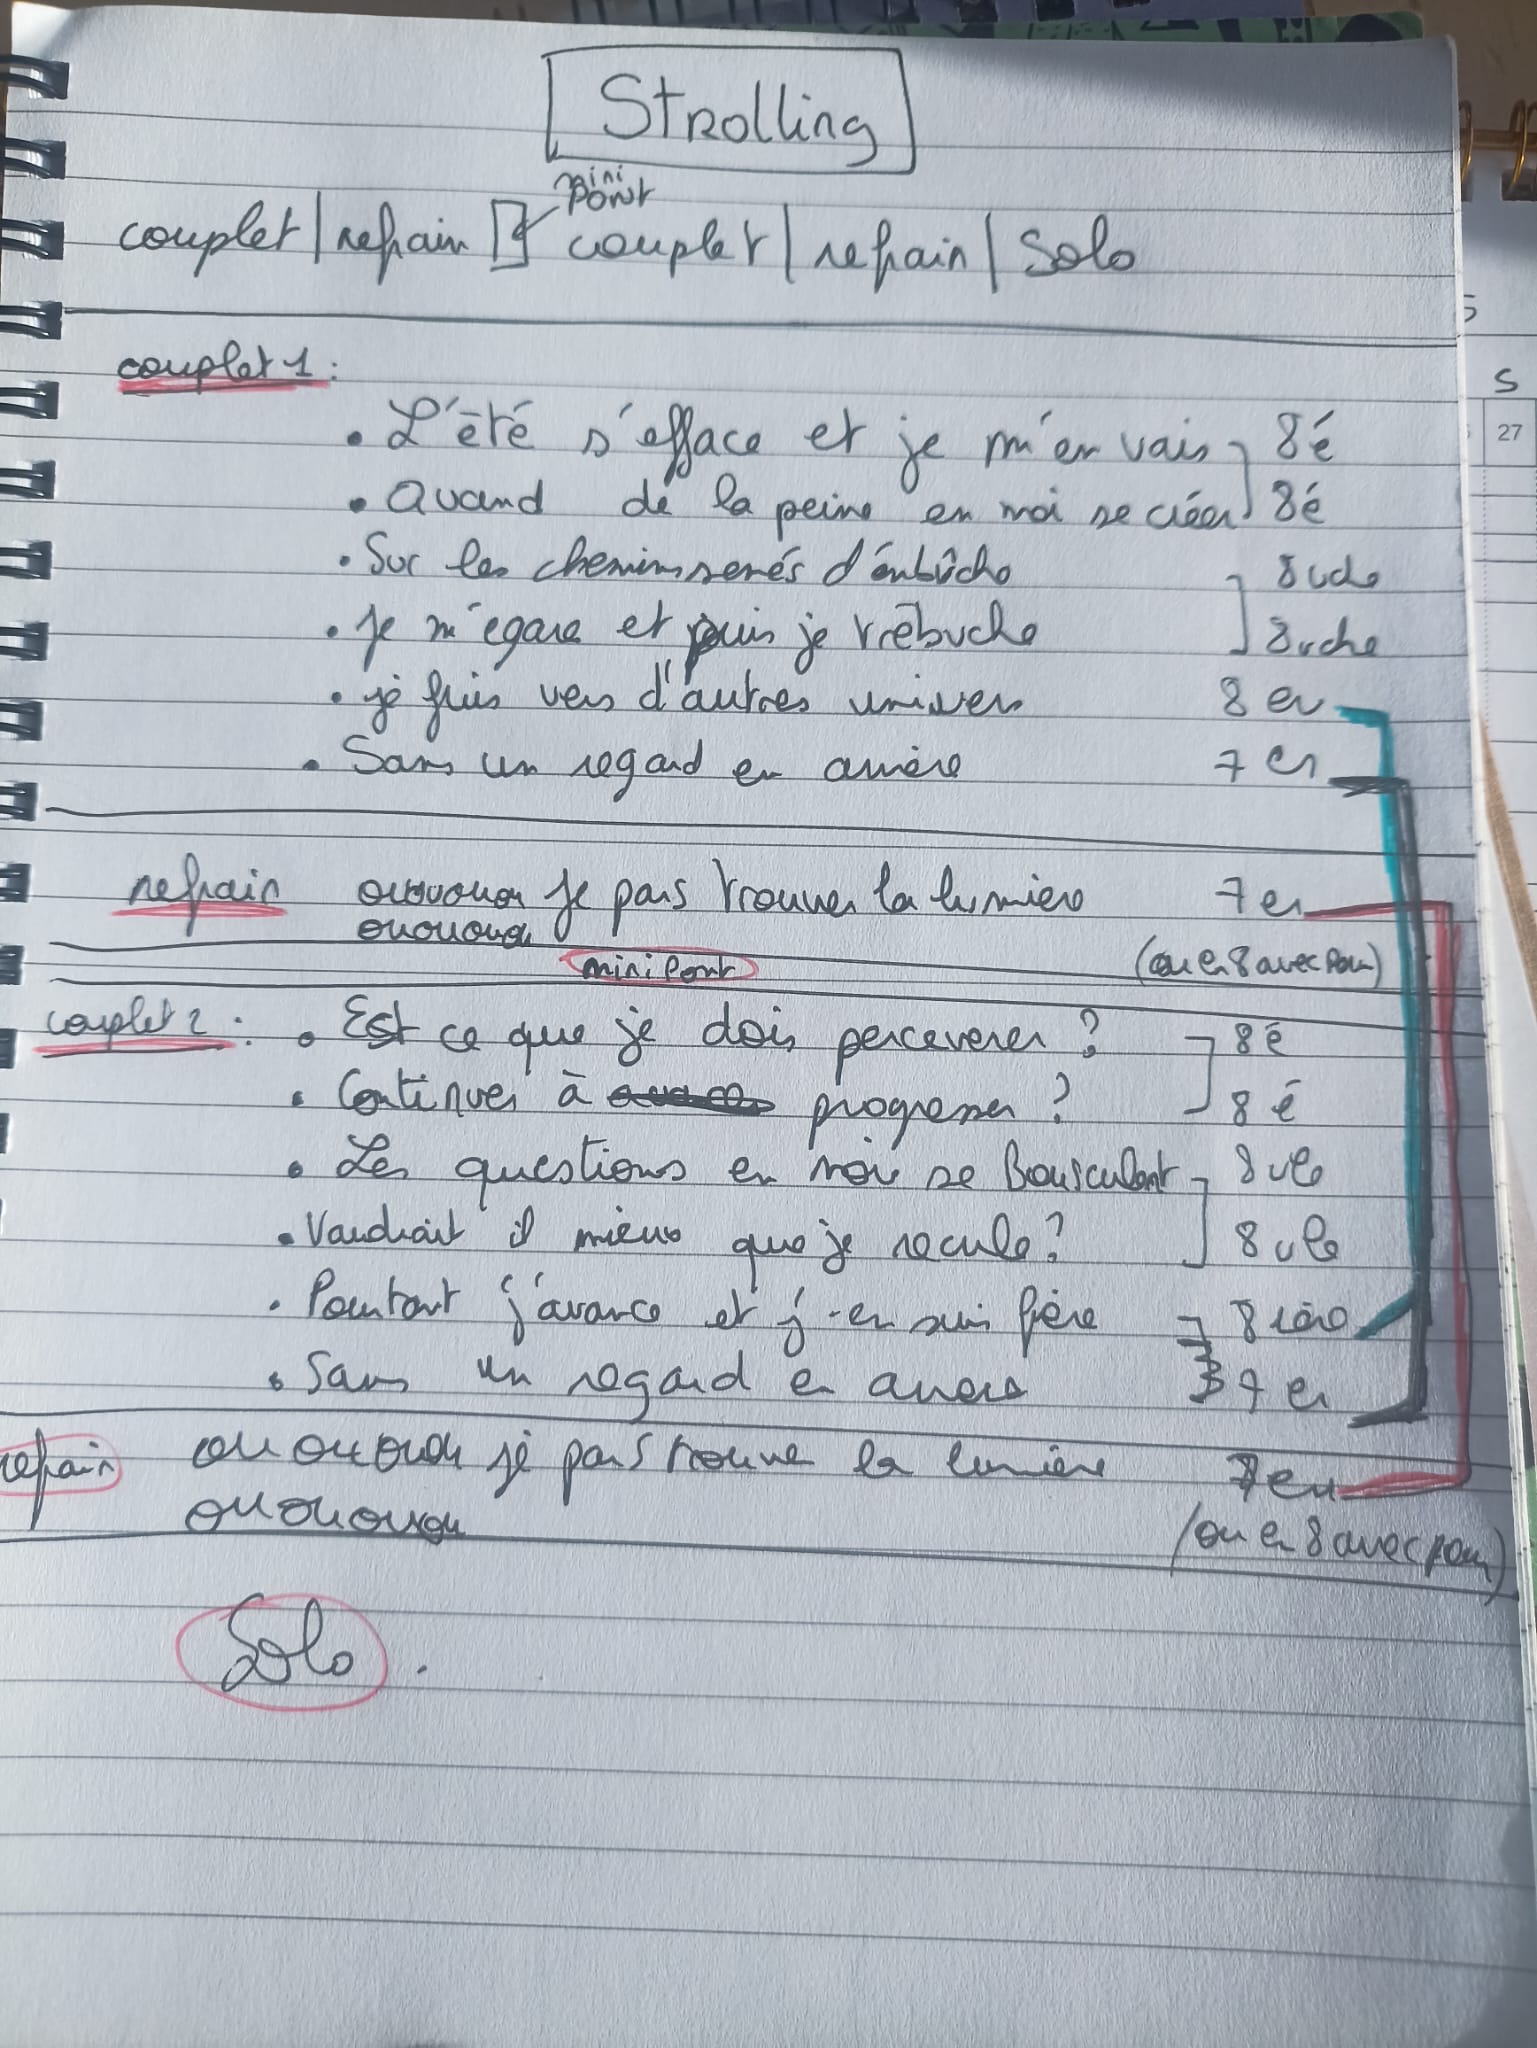 Strolling
mini
pont
couplet | refrain [] couplet | refrain | Solo
couplet 1 :
. L'été s'efface et je m'en vais 8 é
. Quand de la peine en moi se créer 8 é
. Sur les chemins semés d'énbûche 8 uche
. Je m'égare et puis je trébuche 8 uche
. je fuis vers d'autres univers 8 er
. Sans un regard en arrière 7 er
refrain ouououou je pars trouver la lumière 7 er
ouououou
mini pont (ou en 8 avec pour)
couplet 2 : . Est ce que je dois perceverer ? 8 é
. Continuer à progresser ? 8 é
. Les questions en moi se bousculent 8 ule
. Vaudrait il mieux que je recule ? 8 ule
. Pourtant j'avance et j'en suis fière 8 ière
. Sans un regard en arriere 7 er
refrain ouououou je pars trouver la lumière 7 er
ouououou
(ou en 8 avec pour)
Solo .
S
27